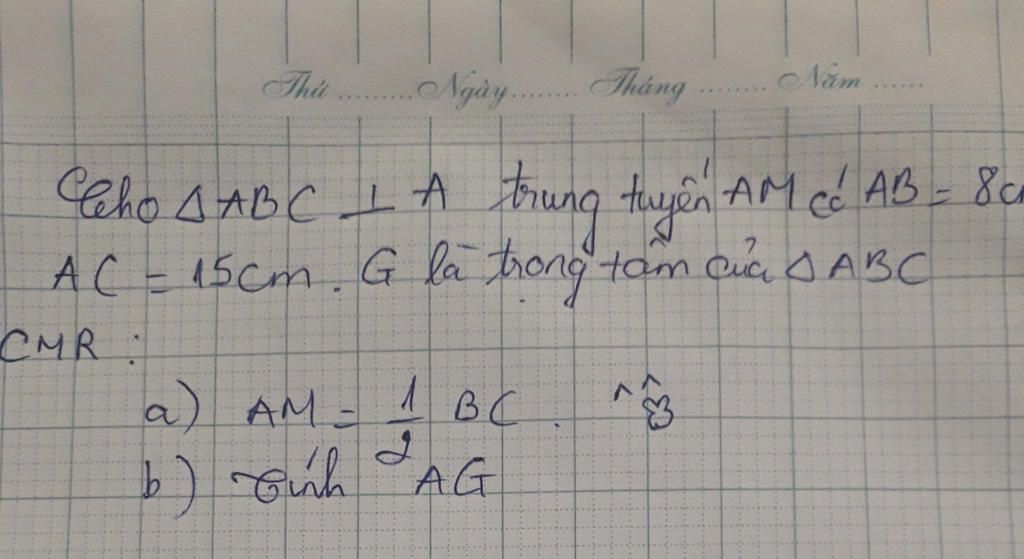 Thứ ......... Ngày ........ Tháng ........ Năm ......
Cho Δ ABC ⊥ A trung tuyến AM có AB = 8c
AC = 15cm. G là trọng tâm của Δ ABC
CMR :
a) AM = 1/2 BC .
b) Tính AG